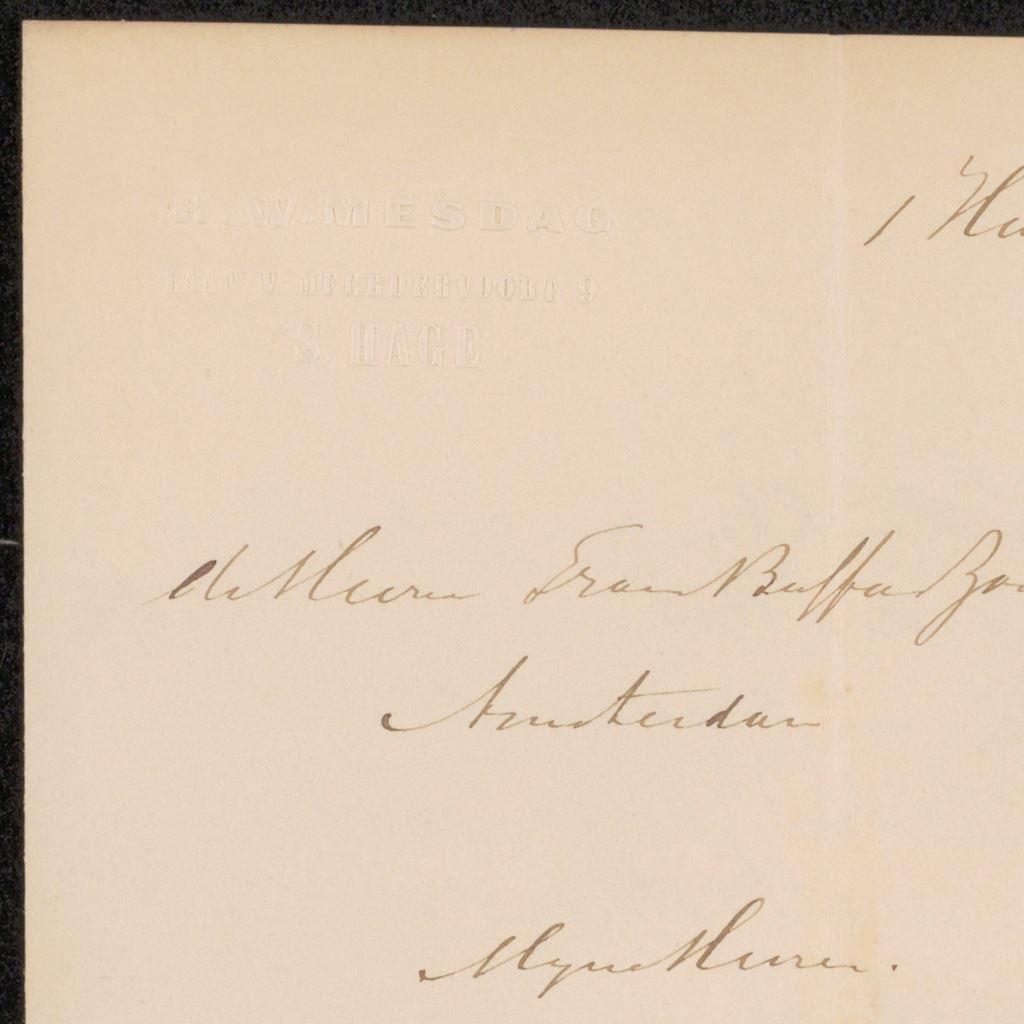 H.W. MESDAG
LAAN V MEERDERVOORT 9
'S. HAGE
de Heeren Frans Buffa &
Amsterdam
Myne Heeren.